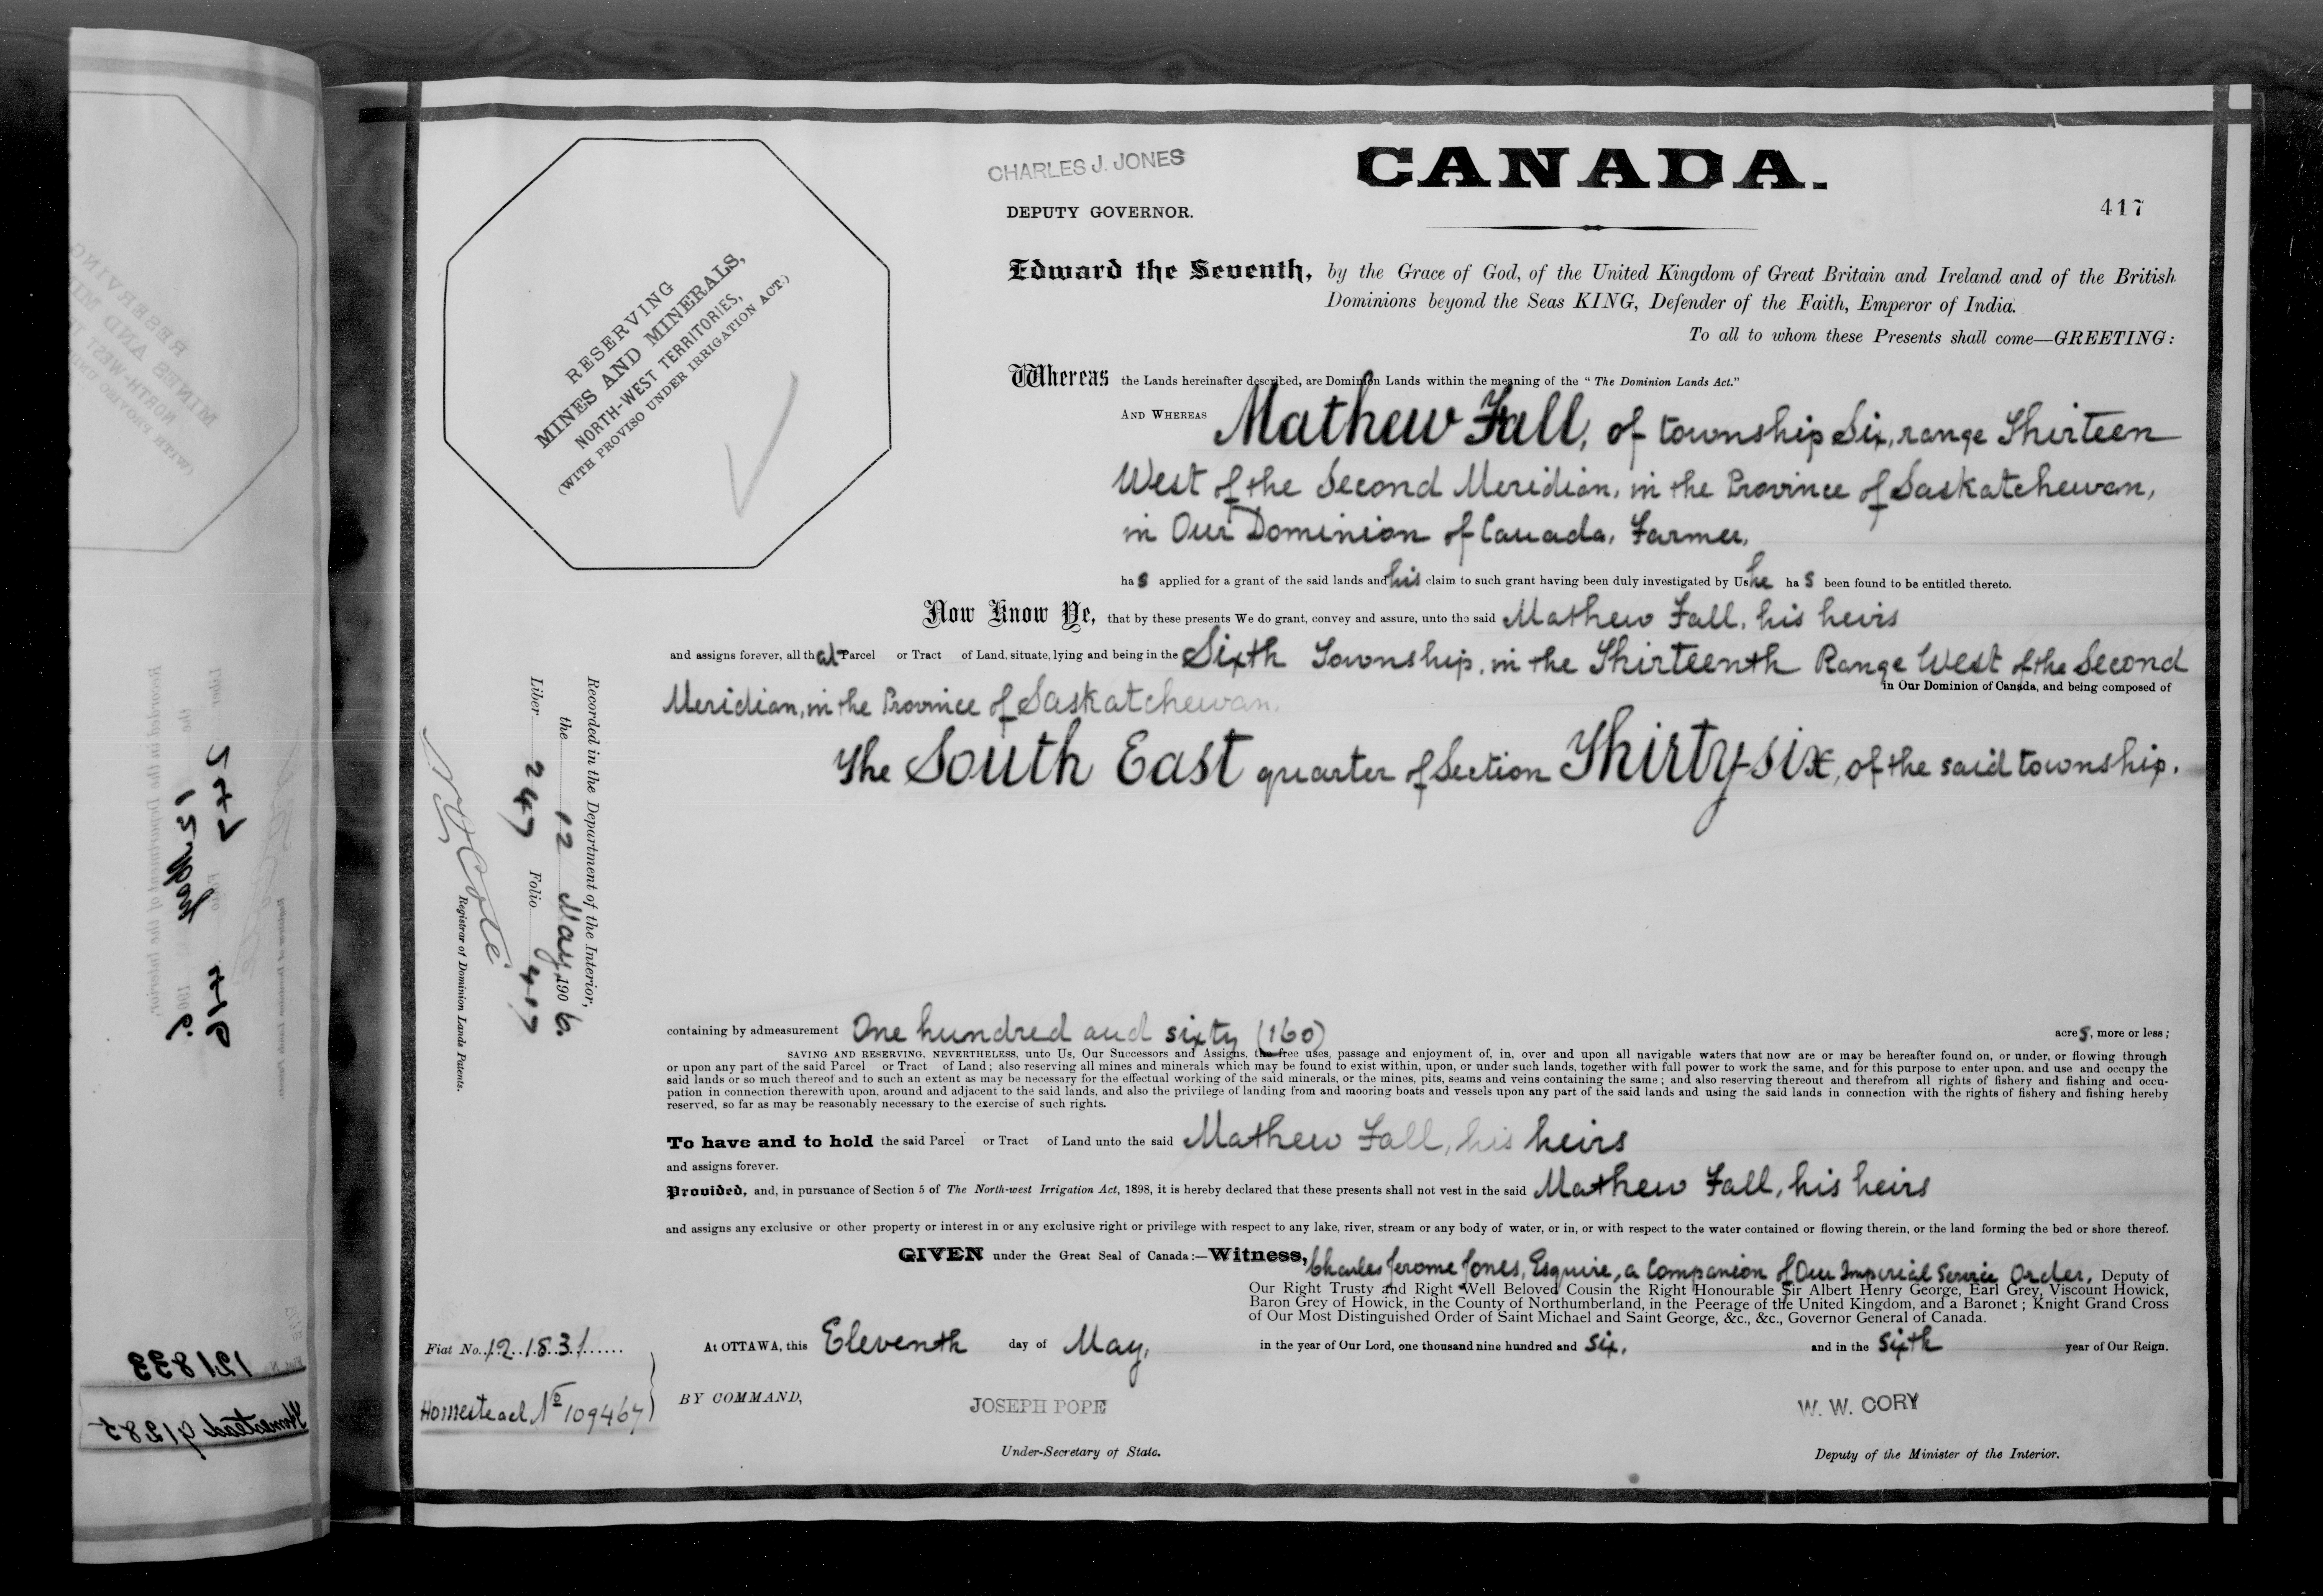 CHARLES J. JONES
CANADA.
DEPUTY GOVERNOR.
417
RESERVING
MINES AND MINERALS,
NORTH-WEST TERRITORIES,
(WITH PROVISO UNDER IRRIGATION ACT.)
Edward the Seventh, by the Grace of God, of the United Kingdom of Great Britain and Ireland and of the British
Dominions beyond the Seas KING, Defender of the Faith, Emperor of India.
To all to whom these Presents shall come—GREETING:
Whereas the Lands hereinafter described, are Dominion Lands within the meaning of the "The Dominion Lands Act."
AND WHEREAS Mathew Fall, of township Six, range Thirteen
West of the Second Meridian, in the Province of Saskatchewan,
in Our Dominion of Canada, Farmer,
has applied for a grant of the said lands and his claim to such grant having been duly investigated by Us he has been found to be entitled thereto.
Now Know Ye, that by these presents We do grant, convey and assure, unto the said Mathew Fall, his heirs
and assigns forever, all that Parcel or Tract of Land, situate, lying and being in the Sixth Township, in the Thirteenth Range West of the Second
Meridian, in the Province of Saskatchewan, in Our Dominion of Canada, and being composed of
The South East quarter of Section Thirty-six, of the said township.
Recorded in the Department of the Interior,
the 12 May, 1906.
Liber 247 Folio 417
N O Coté
Registrar of Dominion Lands Patents.
containing by admeasurement One hundred and sixty (160) acres, more or less;
SAVING AND RESERVING, NEVERTHELESS, unto Us, Our Successors and Assigns, the free uses, passage and enjoyment of, in, over and upon all navigable waters that now are or may be hereafter found on, or under, or flowing through
or upon any part of the said Parcel or Tract of Land; also reserving all mines and minerals which may be found to exist within, upon, or under such lands, together with full power to work the same, and for this purpose to enter upon, and use and occupy the
said lands or so much thereof and to such an extent as may be necessary for the effectual working of the said minerals, or the mines, pits, seams and veins containing the same; and also reserving thereout and therefrom all rights of fishery and fishing and occu-
pation in connection therewith upon, around and adjacent to the said lands, and also the privilege of landing from and mooring boats and vessels upon any part of the said lands and using the said lands in connection with the rights of fishery and fishing hereby
reserved, so far as may be reasonably necessary to the exercise of such rights.
To have and to hold the said Parcel or Tract of Land unto the said Mathew Fall, his heirs
and assigns forever.
Provided, and, in pursuance of Section 5 of The North-west Irrigation Act, 1898, it is hereby declared that these presents shall not vest in the said Mathew Fall, his heirs
and assigns any exclusive or other property or interest in or any exclusive right or privilege with respect to any lake, river, stream or any body of water, or in, or with respect to the water contained or flowing therein, or the land forming the bed or shore thereof.
GIVEN under the Great Seal of Canada:—Witness, Charles Jerome Jones, Esquire, a Companion of Our Imperial Service Order, Deputy of
Our Right Trusty and Right Well Beloved Cousin the Right Honourable Sir Albert Henry George, Earl Grey, Viscount Howick,
Baron Grey of Howick, in the County of Northumberland, in the Peerage of the United Kingdom, and a Baronet; Knight Grand Cross
of Our Most Distinguished Order of Saint Michael and Saint George, &c., &c., Governor General of Canada.
Fiat No. 121831
At OTTAWA, this Eleventh day of May, in the year of Our Lord, one thousand nine hundred and six, and in the sixth year of Our Reign.
Homestead No 109467
BY COMMAND,
JOSEPH POPE
Under-Secretary of State.
W. W. CORY
Deputy of the Minister of the Interior.
121833
Homestead 91285